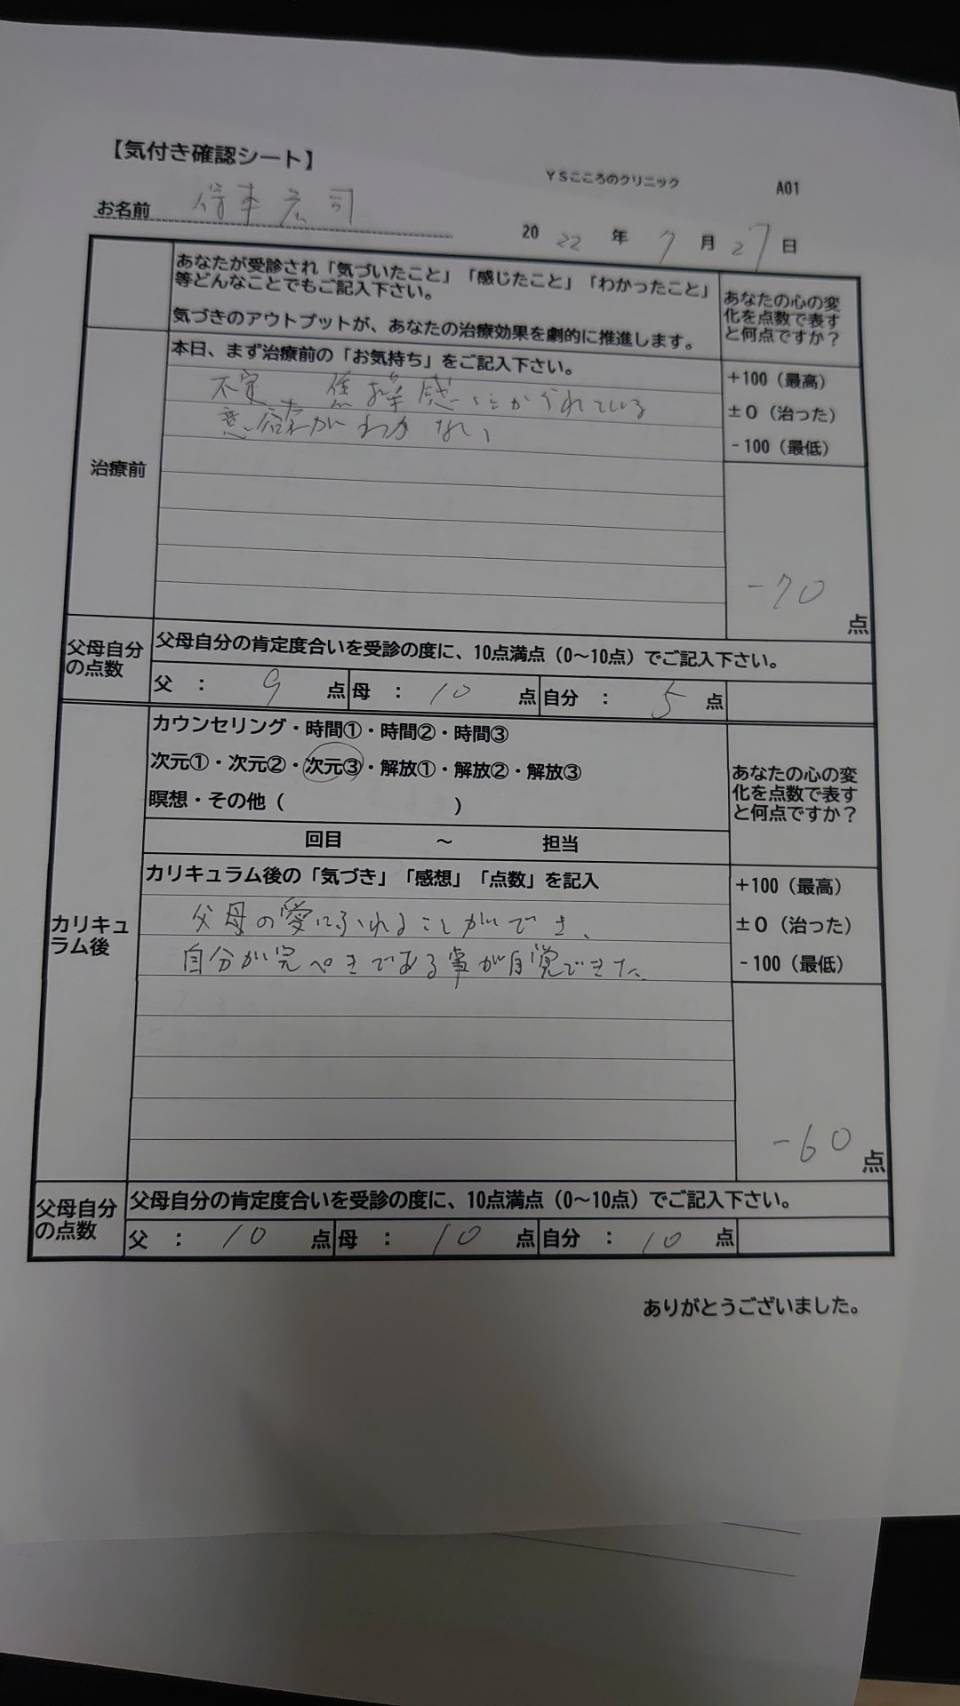 【気付き確認シート】
YSこころのクリニック A01
お名前 本宏司 2022年7月27日
あなたが受診され「気づいたこと」「感じたこと」「わかったこと」
等どんなことでもご記入下さい。
気づきのアウトプットが、あなたの治療効果を劇的に推進します。
あなたの心の変
化を点数で表す
と何点ですか？
治療前
本日、まず治療前の「お気持ち」をご記入下さい。
焦燥感にかられている
がわかない
+100（最高）
±0（治った）
-100（最低）
-70点
父母自分
の点数
父母自分の肯定度合いを受診の度に、10点満点（0～10点）でご記入下さい。
父：9点 母：10点 自分：5点
カリキュ
ラム後
カウンセリング・時間①・時間②・時間③
次元①・次元②・次元③・解放①・解放②・解放③
瞑想・その他（ ）
回目 ～ 担当
あなたの心の変
化を点数で表す
と何点ですか？
カリキュラム後の「気づき」「感想」「点数」を記入
父母の愛にふれることができ、
自分が完ぺきである事が自覚できた
+100（最高）
±0（治った）
-100（最低）
-60点
父母自分
の点数
父母自分の肯定度合いを受診の度に、10点満点（0～10点）でご記入下さい。
父：10点 母：10点 自分：10点
ありがとうございました。